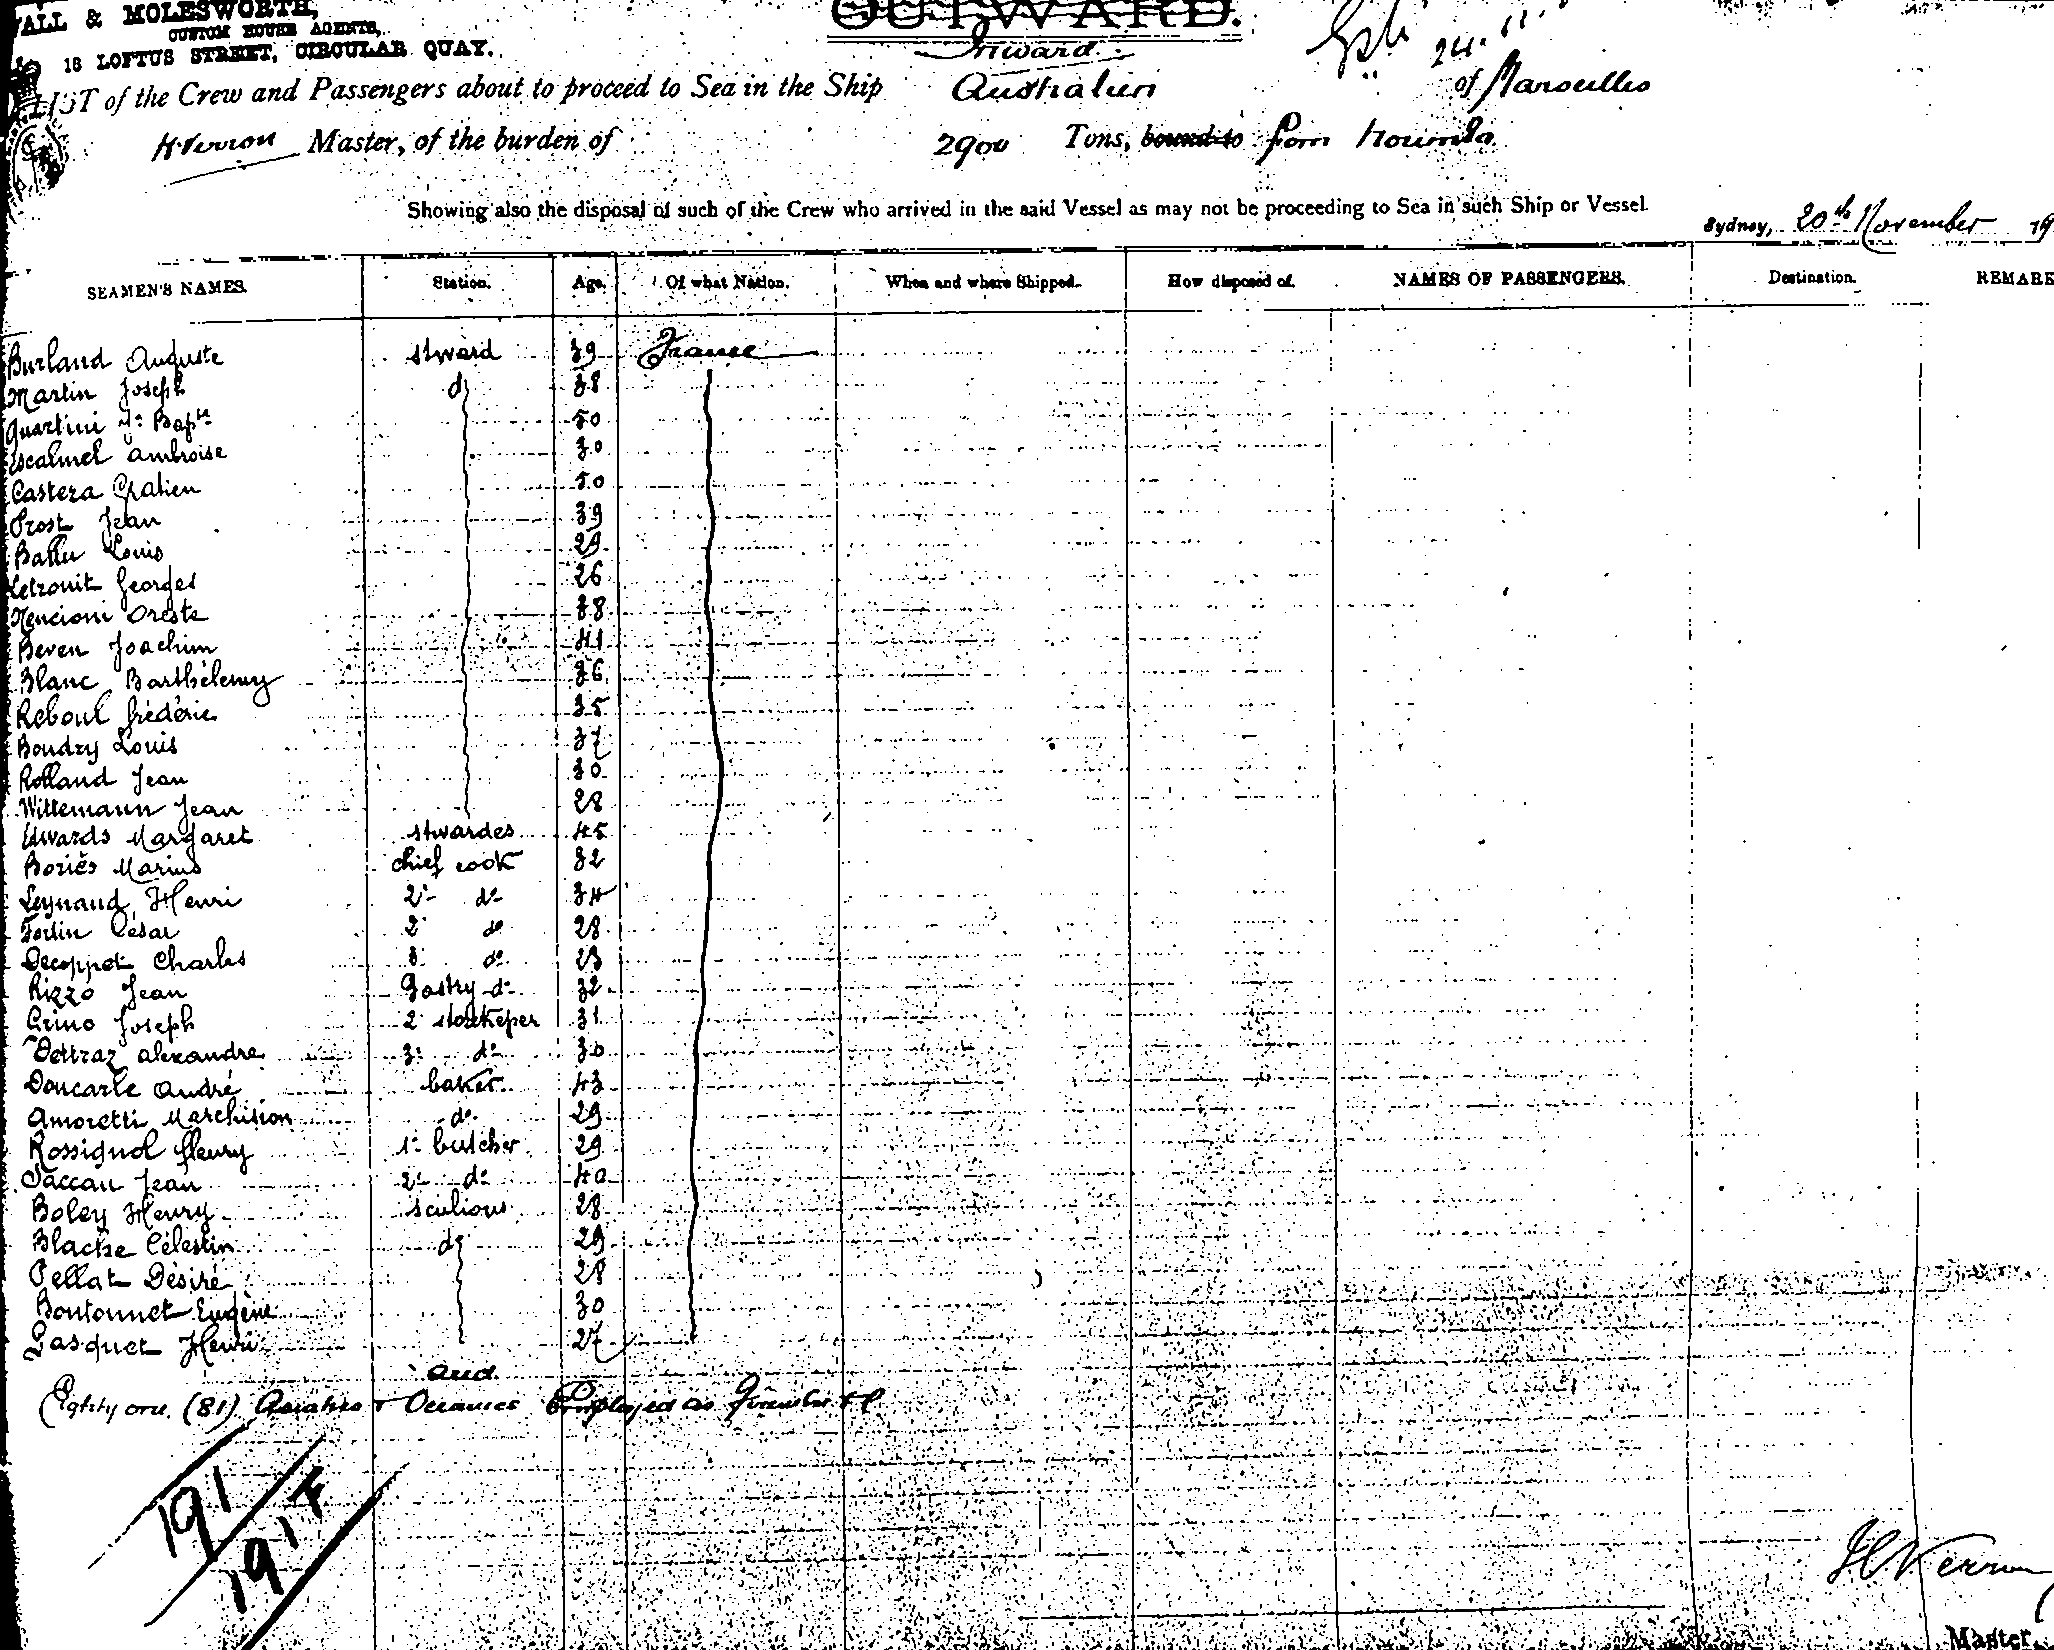 ALL & MOLESWORTH,
CUSTOM HOUSE AGENTS,
18 LOFTUS STREET, CIRCULAR QUAY.
OUTWARD.
Inward
24.11
LIST of the Crew and Passengers about to proceed to Sea in the Ship Australien of Marseilles
H. Verron Master, of the burden of 2900 Tons, bound to from Noumea
Showing also the disposal of such of the Crew who arrived in the said Vessel as may not be proceeding to Sea in such Ship or Vessel.
Sydney, 20th November 19
SEAMEN'S NAMES. Station. Age. Of what Nation. When and where Shipped. How disposed of. NAMES OF PASSENGERS. Destination. REMARK
Burland Auguste stward 39 France
Martin Joseph do 38
Quartini Jn Bapte 50
Escalmel Ambroise 30
Castera Gratien 50
Prost Jean 39
Louis 29
Letrouit Georges 26
Mencioni Oreste 38
Beven Joachim 41
Blanc Barthélemy 36
Reboul frédéric 35
Boudry Louis 37
Rolland Jean 30
Wittemann Jean 28
Edwards Margaret stwardes 45
Boriès Marius chief cook 32
Leynaud Henri 2d do 34
Fortin César 2 do 28
Decoppet Charles 3 do 23
Rizzo Jean Pastry do 32
Crino Joseph 2 storekeper 31
Dettraz Alexandre 3 do 30
Doucarle André baker 43
Amoretti Marchision do 29
Rossignol fleury 1 butcher 29
Paccau Jean 2 do 40
Boley Henry sculions 28
Blache Célestin do 29
Pellat Désiré 28
Boutonnet Eugène 30
Gasquet Henri 27
and
Eighty one (81) Asiatics & Oceanics Employed as Firemen &c
191
191
H Verron
Master